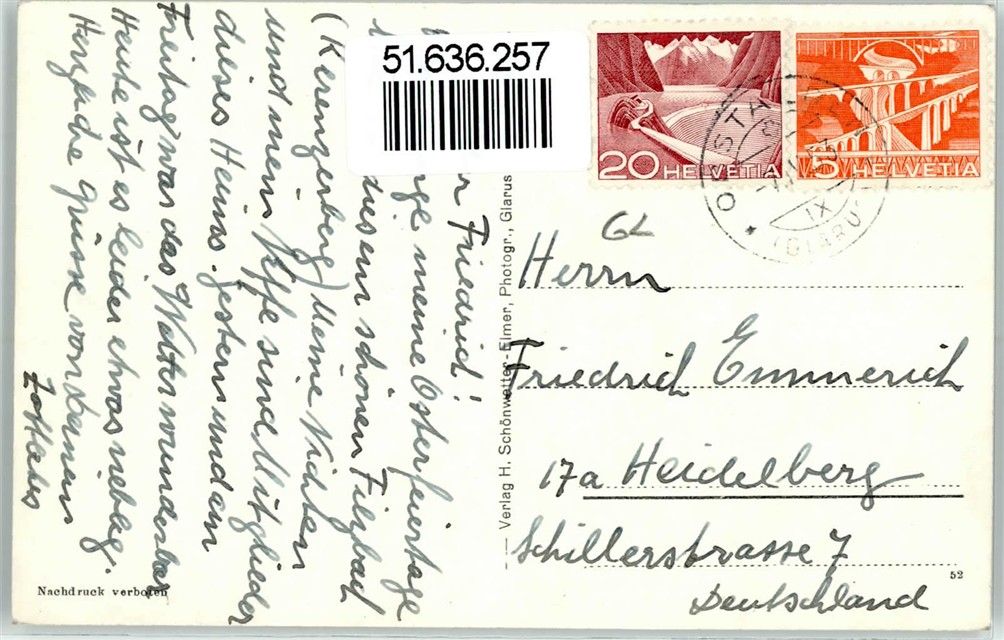 51.636.257
20 HELVETIA
5 HELVETIA
(GLARUS)
GL
Herrn
Friedrich Emmerich
17a Heidelberg
Schillerstrasse 7
Deutschland
52
Verlag H. Schönwetter-Elmer, Photogr., Glarus
Friedrich!
meine Osterfeiertage
diesem schönen Filzbach
(Kerenzerberg) Meine Nichten
und mein Neffe sind Mitglieder
dieses Heims. Gestern und am
Freitag war das Wetter wunderbar
Heute ist es leider etwas neblig.
Herzliche Grüsse von Deinem
Nachdruck verboten